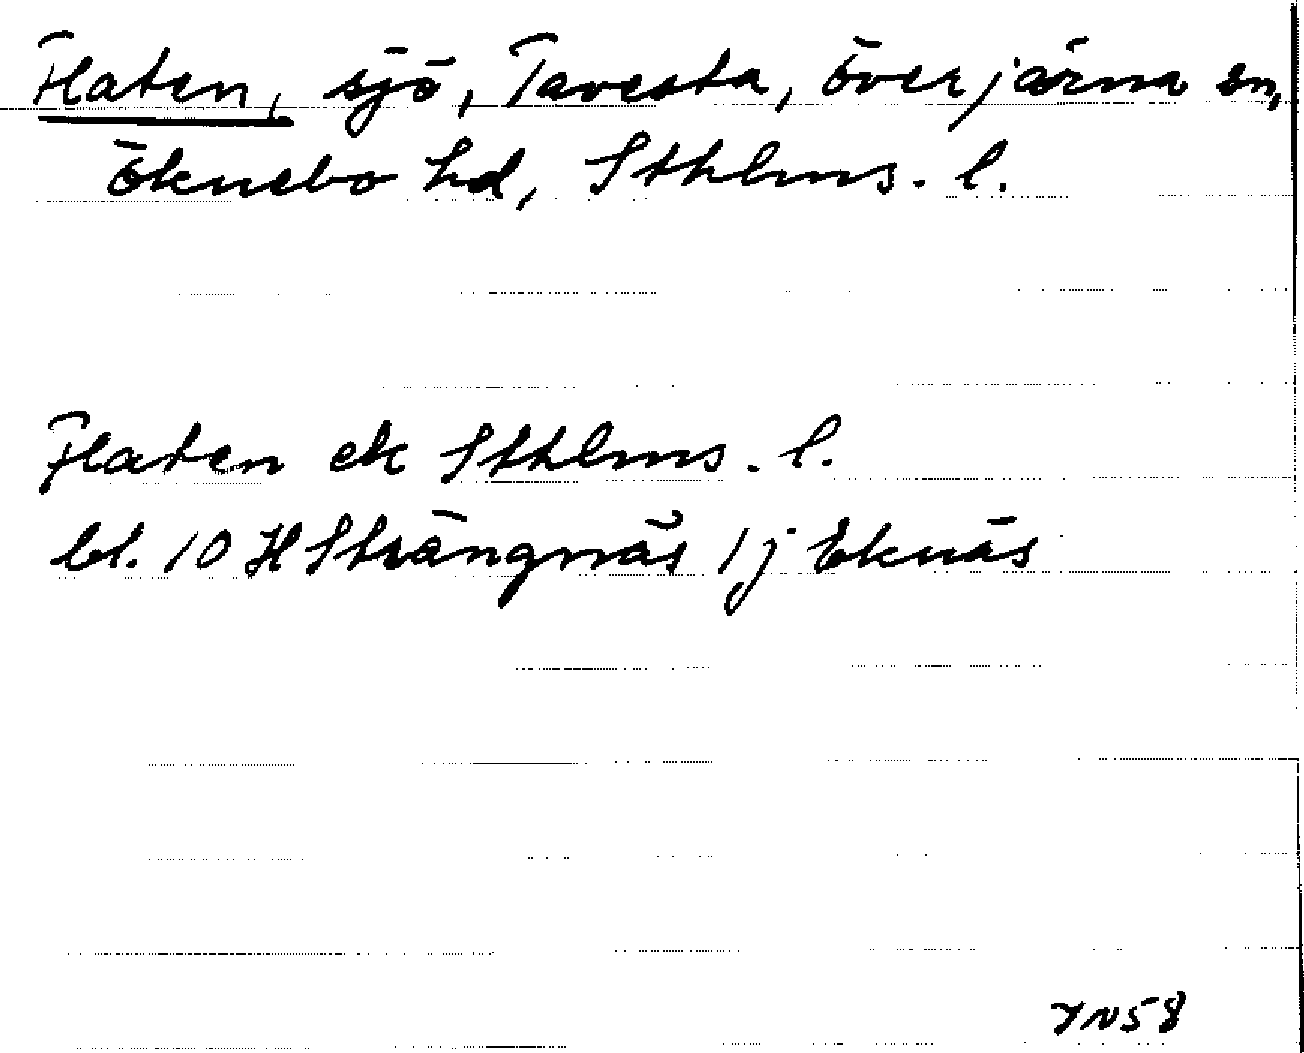 Flaten, sjö, Tavesta, Överjärna sn,
Öknebo hd, Sthlms. l.
Flaten ek Sthlms. l.
bl. 10 H Strängnäs 1j Eknäs
YN58